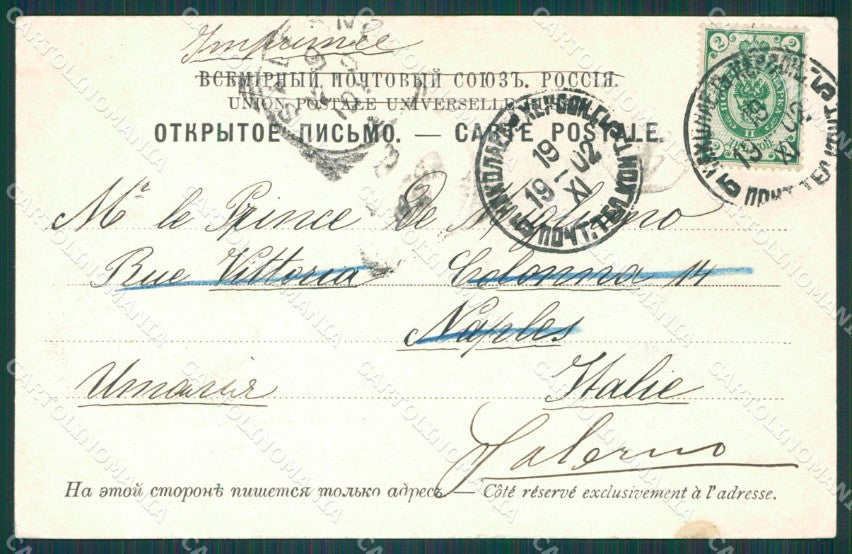 Imprimée
ВСЕМІРНЫЙ ПОЧТОВЫЙ СОЮЗЪ. РОССІЯ.
UNION POSTALE UNIVERSELLE.
ОТКРЫТОЕ ПИСЬМО. — CARTE POSTALE.
2 2
НИКОЛАЕВЪ ХЕРСОН. Г.
19 02
19 XI
5 ПОЧТ. ТЕЛ. КОНТ. 5
Mr le Prince De
Rue Vittoria Colonna 14
Naples
Италія Italie
Salerno
На этой сторонѣ пишется только адресъ. — Côté réservé exclusivement à l'adresse.
CARTOLINOMANIA